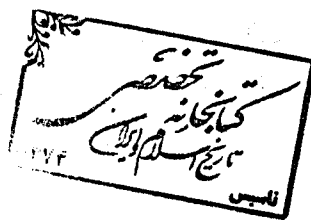 کتابخانه
تخصصی
تاریخ اسلام و ایران
تاسیس